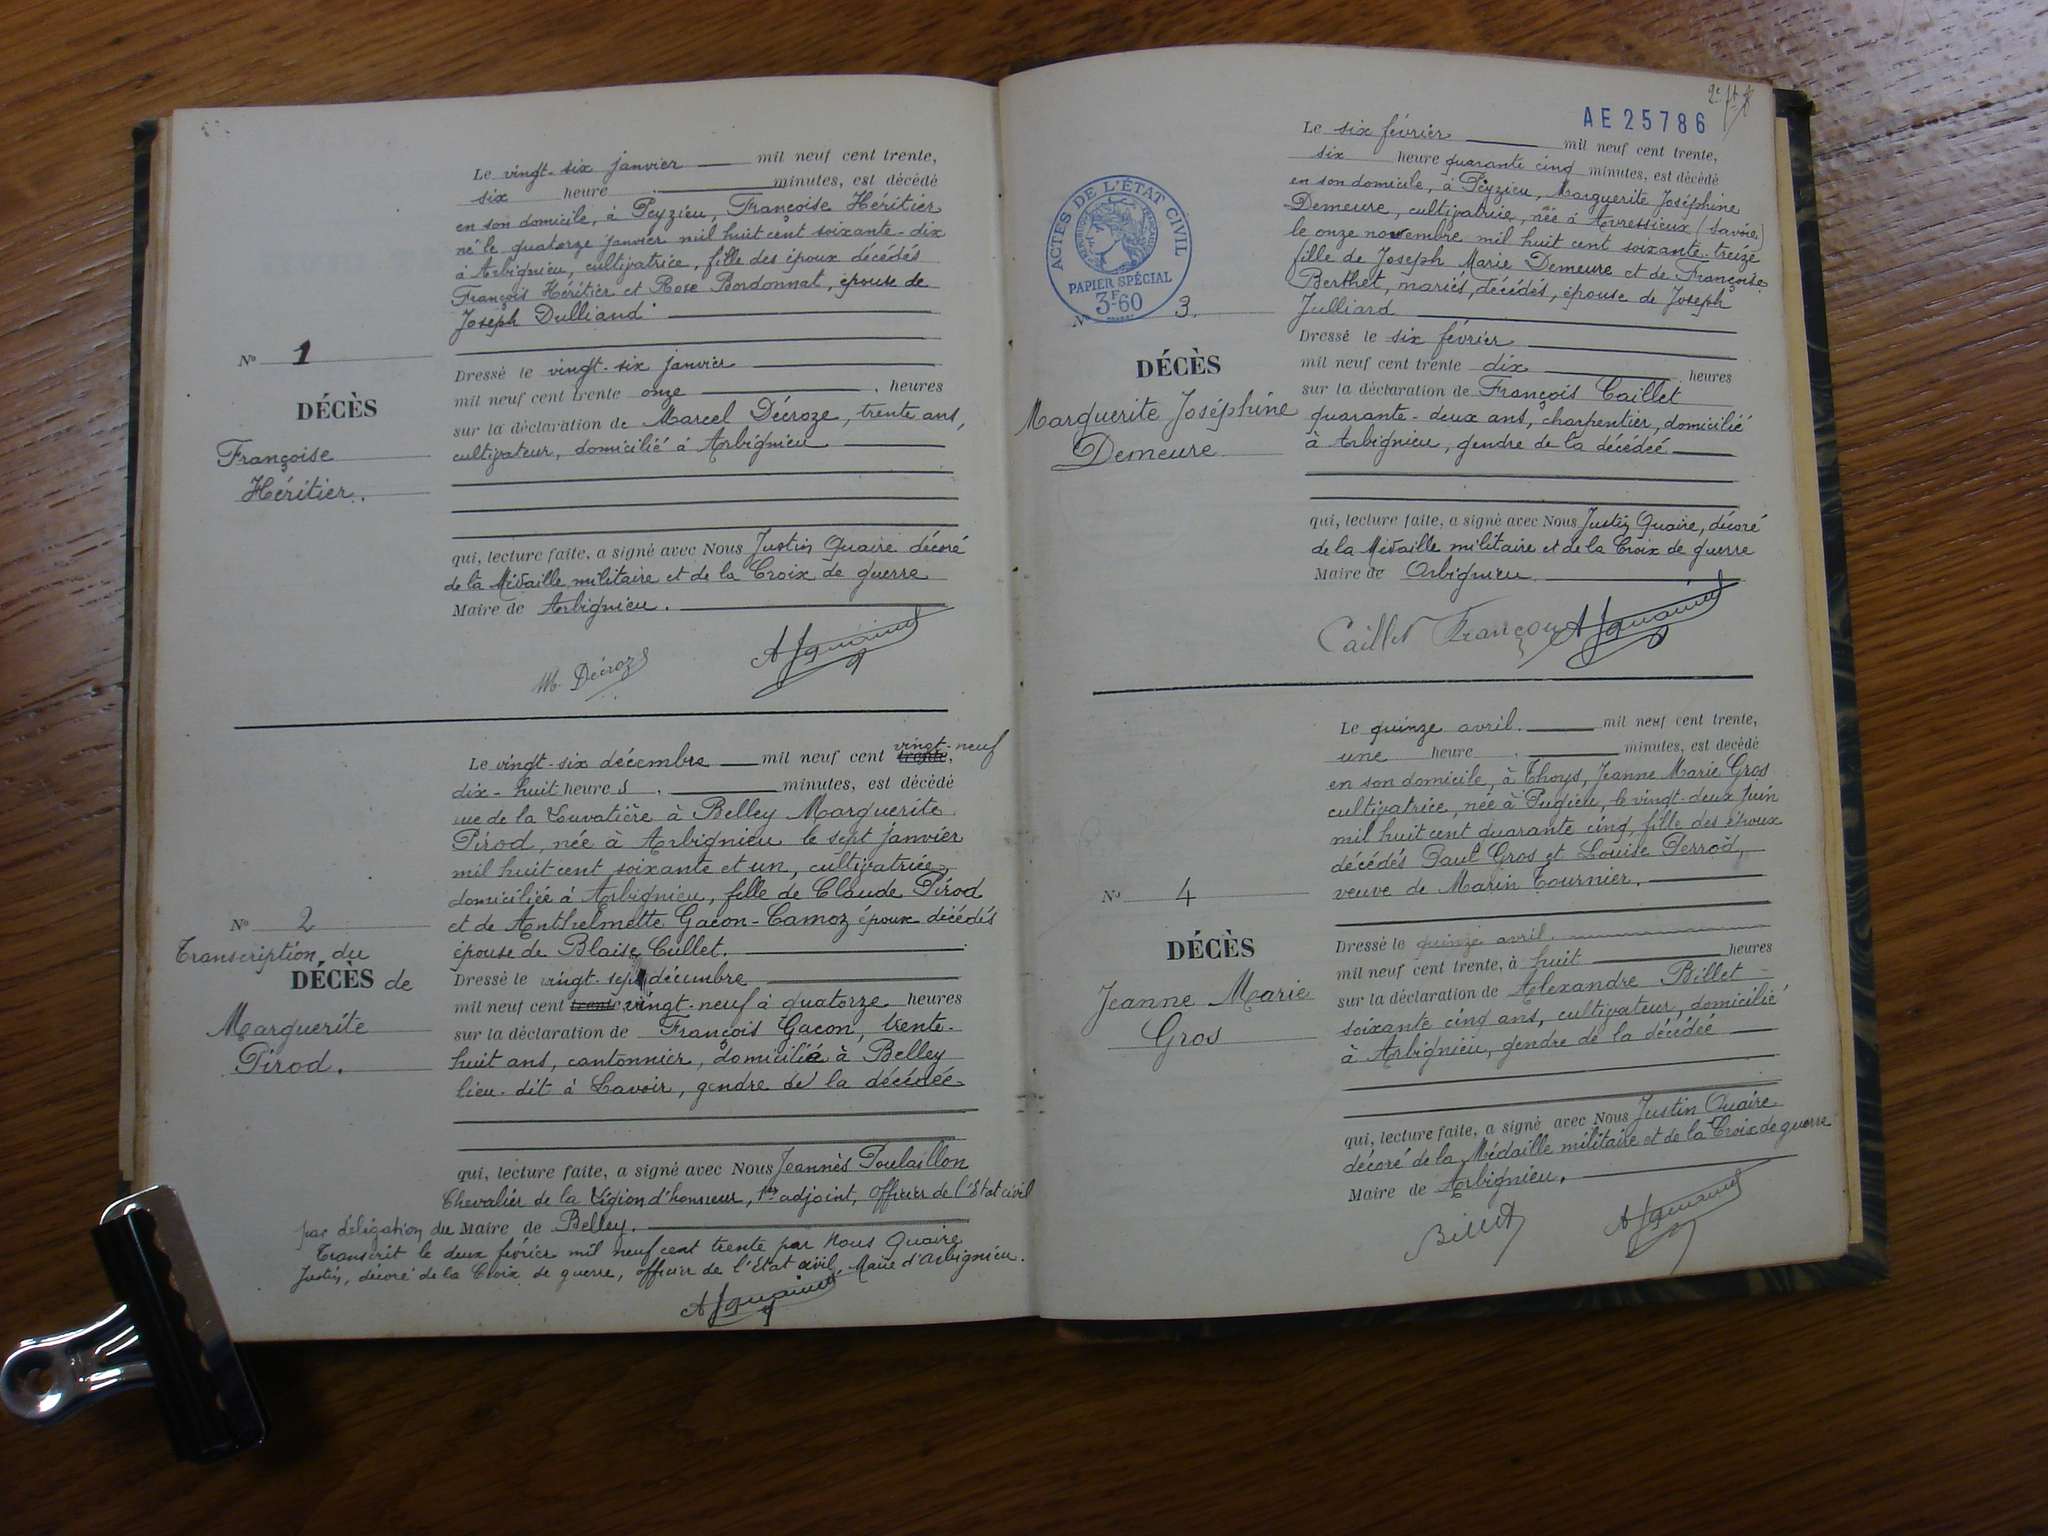 Le vingt-six janvier mil neuf cent trente,
six heure minutes, est décédé
en son domicile, à Peyzieu, Françoise Héritier
né le quatorze janvier mil huit cent soixante-dix
à Arbignieu, cultivatrice, fille des époux décédés
François Héritier et Rose Bordonnat, épouse de
Joseph Dulliand
No 1
DÉCÈS
Françoise
Héritier.
Dressé le vingt-six janvier
mil neuf cent trente onze heures
sur la déclaration de Marcel Décroze, trente ans,
cultivateur, domicilié à Arbignieu
qui, lecture faite, a signé avec Nous Justin Quaire décoré
de la Médaille militaire et de la Croix de guerre
Maire de Arbignieu.
M. Décroze
Le vingt-six décembre mil neuf cent trente, vingt-neuf
dix-huit heures minutes, est décédé
rue de la à Belley Marguerite
Pirod, née à Arbignieu le sept janvier
mil huit cent soixante et un, cultivatrice
domiciliée à Arbignieu, fille de Claude Pirod
et de Anthelmette Gacon-Camoz époux décédés
épouse de Blaise Cullet.
No 2
Transcription du
DÉCÈS de
Marguerite
Pirod.
Dressé le vingt-sept décembre
mil neuf cent trente vingt-neuf à quatorze heures
sur la déclaration de François Gacon, trente-
huit ans, cantonnier, domicilié à Belley
lieu-dit à Lavoir, gendre de la décédée
qui, lecture faite, a signé avec Nous Jeannès Poulaillon
Chevalier de la Légion d'honneur, 1er adjoint, officier de l'Etat civil
par délégation du Maire de Belley.
Transcrit le deux février mil neuf cent trente par Nous Quaire
Justin, décoré de la Croix de guerre, officier de l'Etat civil, Maire d'Arbignieu.
AE 25786
ACTES DE L'ÉTAT CIVIL
PAPIER SPÉCIAL
3F60
Le six février mil neuf cent trente,
six heure quarante cinq minutes, est décédé
en son domicile, à Peyzieu, Marguerite Joséphine
Demeure, cultivatrice, née à Avressieux (Savoie)
le onze novembre mil huit cent soixante-treize
fille de Joseph Marie Demeure et de Françoise
Berthet, mariés, décédés, épouse de Joseph
Julliard
No 3.
DÉCÈS
Marguerite Joséphine
Demeure
Dressé le six février
mil neuf cent trente dix heures
sur la déclaration de François Caillet
quarante-deux ans, charpentier, domicilié
à Arbignieu, gendre de la décédée
qui, lecture faite, a signé avec Nous Justin Quaire, décoré
de la Médaille militaire et de la Croix de guerre
Maire de Arbignieu
Caillet François
Le quinze avril. mil neuf cent trente,
une heure minutes, est décédé
en son domicile, à Thoys, Jeanne Marie Gros
cultivatrice, née à Pugieu, le vingt-deux juin
mil huit cent quarante cinq, fille des époux
décédés Paul Gros et Louise Perrod,
veuve de Marin Tournier.
No 4
DÉCÈS
Jeanne Marie
Gros
Dressé le quinze avril.
mil neuf cent trente, à huit heures
sur la déclaration de Alexandre Billet
soixante cinq ans, cultivateur, domicilié
à Arbignieu, gendre de la décédée
qui, lecture faite, a signé avec Nous Justin Quaire
décoré de la Médaille militaire et de la Croix de guerre
Maire de Arbignieu.
Billet